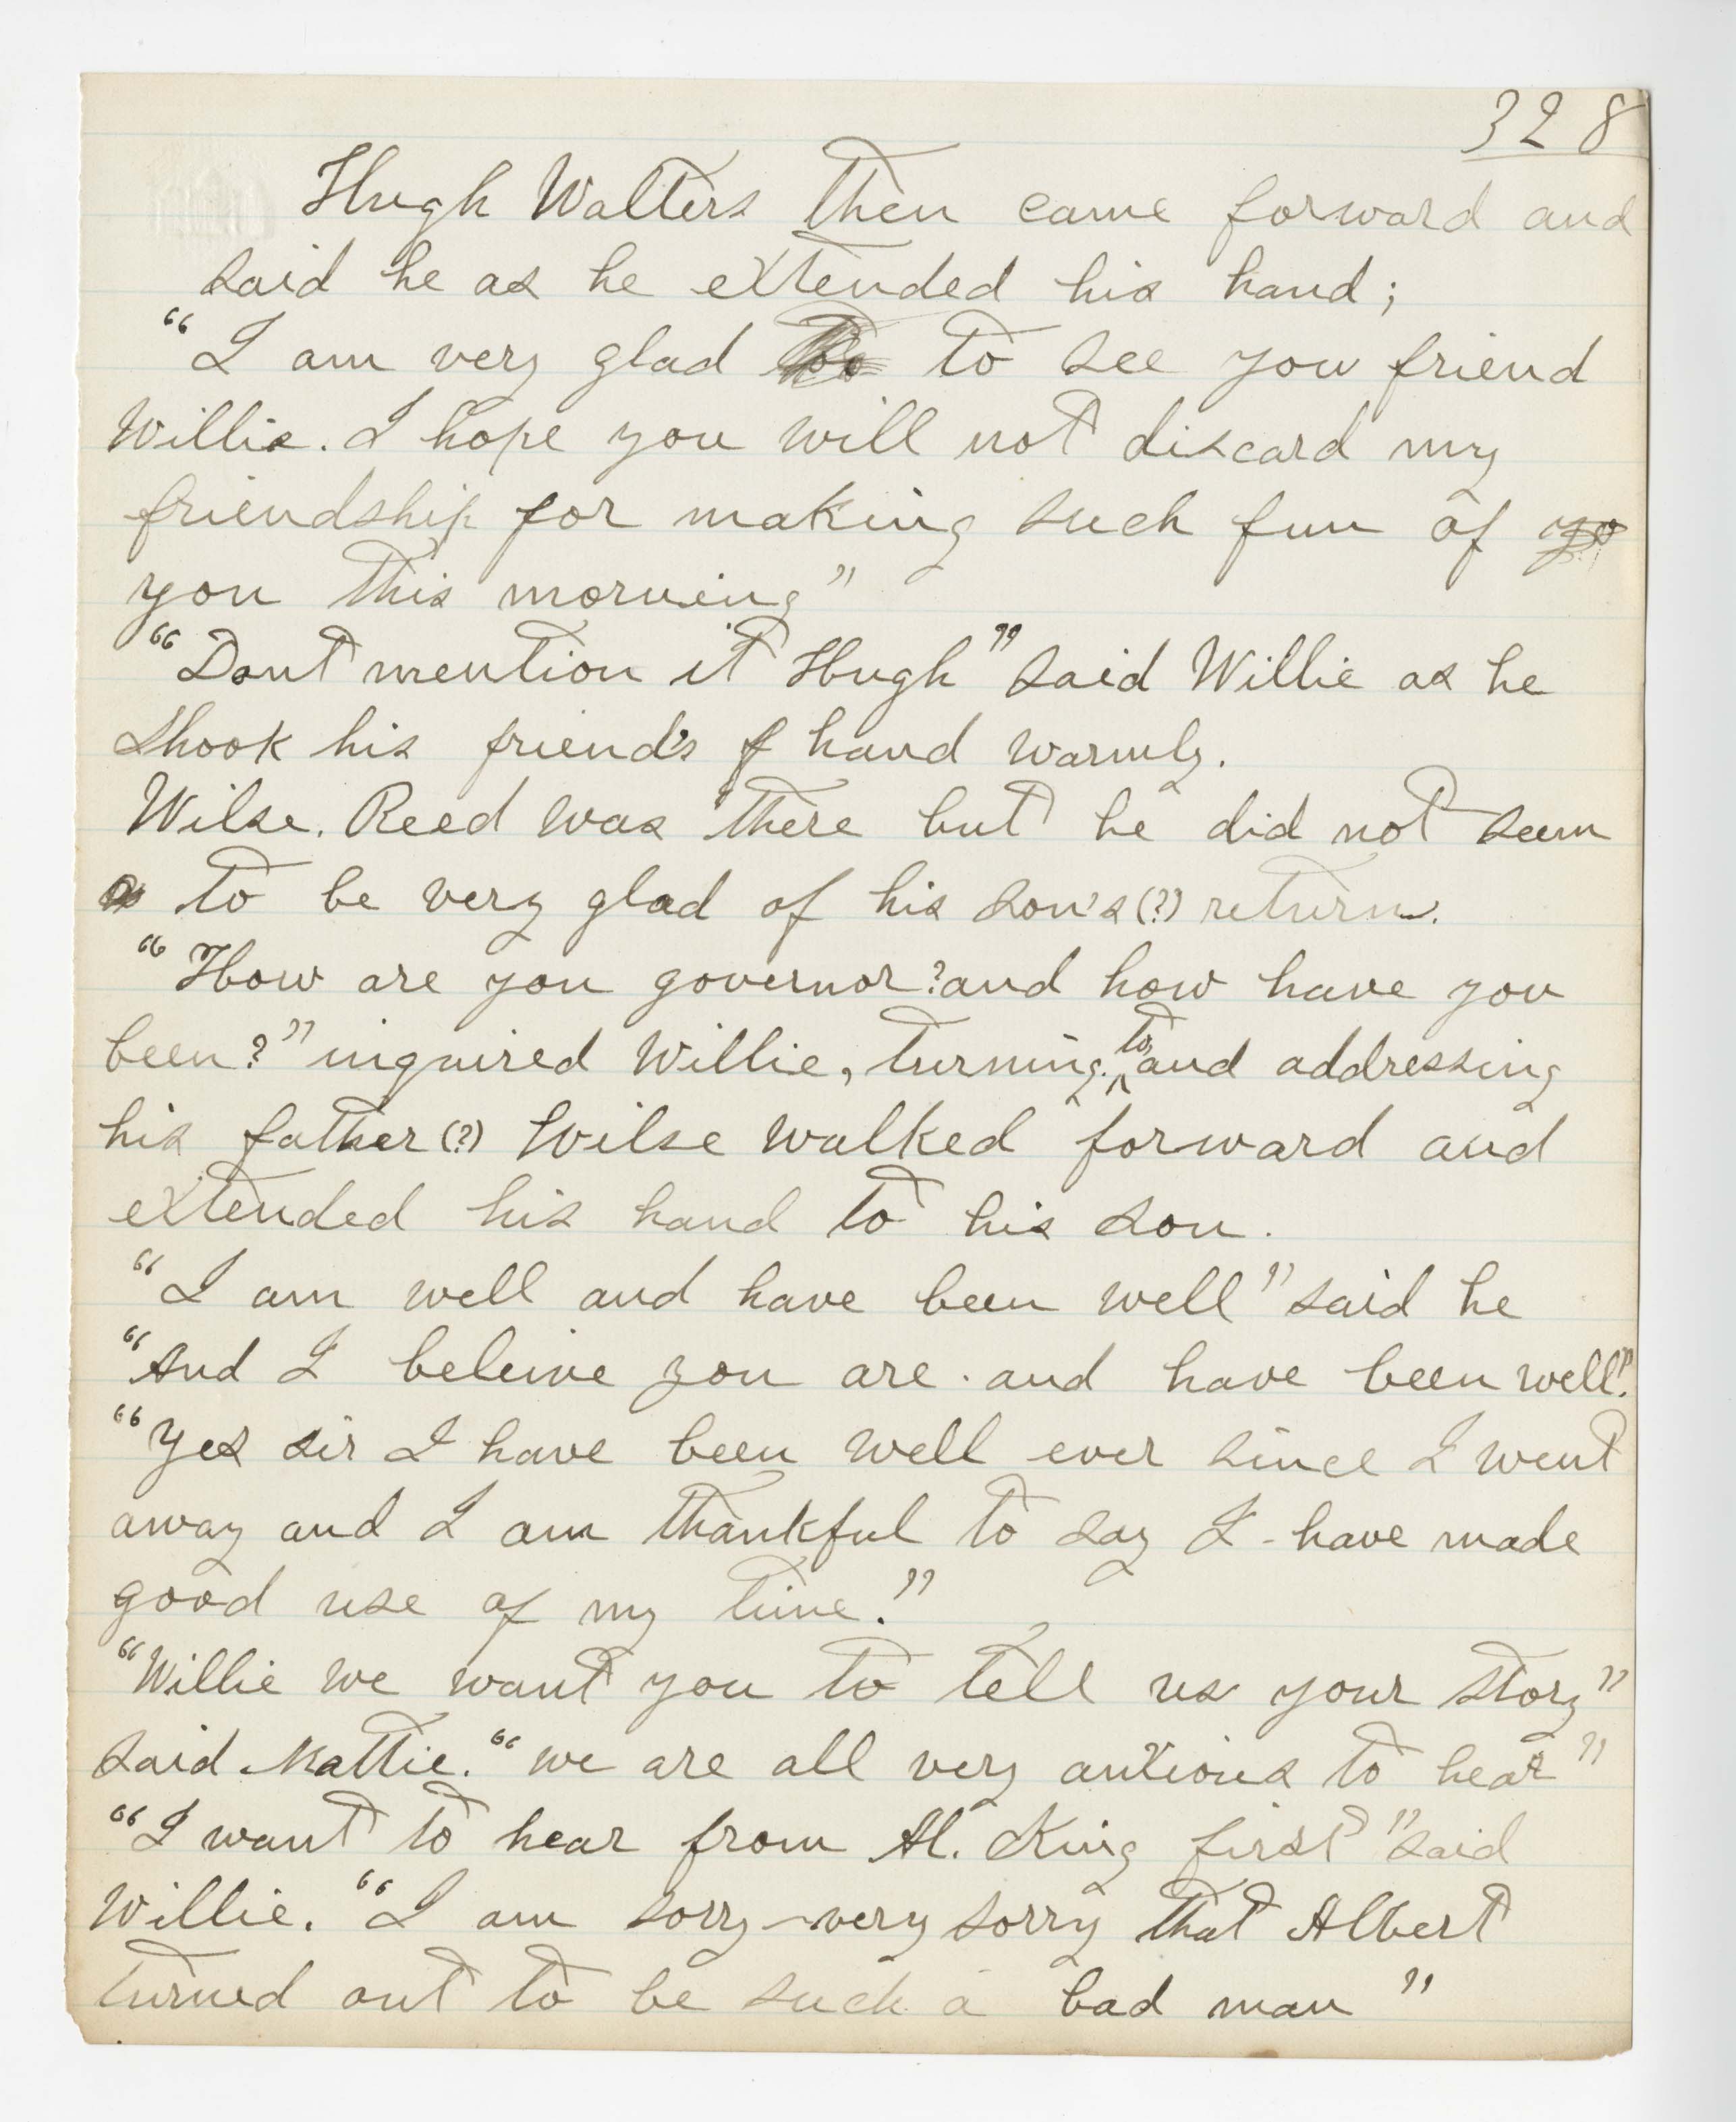 328
Hugh Walters then came forward and
said he as he extended his hand;
"I am very glad to to see you friend
Willie. I hope you will not discard my
friendship for making such fun of yo
you this morning"
"Dont mention it Hugh" said Willie as he
shook his friend's f hand warmly.
Wilse. Reed was there but he did not seem
to be very glad of his son's (?) return.
"How are you governor? and how have you
been?" inquired Willie, turning to and addressing
his father (?) Wilse walked forward and
extended his hand to his son.
"I am well and have been well" said he
"And I beleive you are. and have been well".
"Yes sir I have been well ever since I went
away and I am thankful to say I - have made
good use of my time."
"Willie we want you to tell us your story"
said Mattie. "we are all very anxious to hear"
"I want to hear from Al. King first" said
Willie. "I am sorry - very sorry that Albert
turned out to be such a bad man"